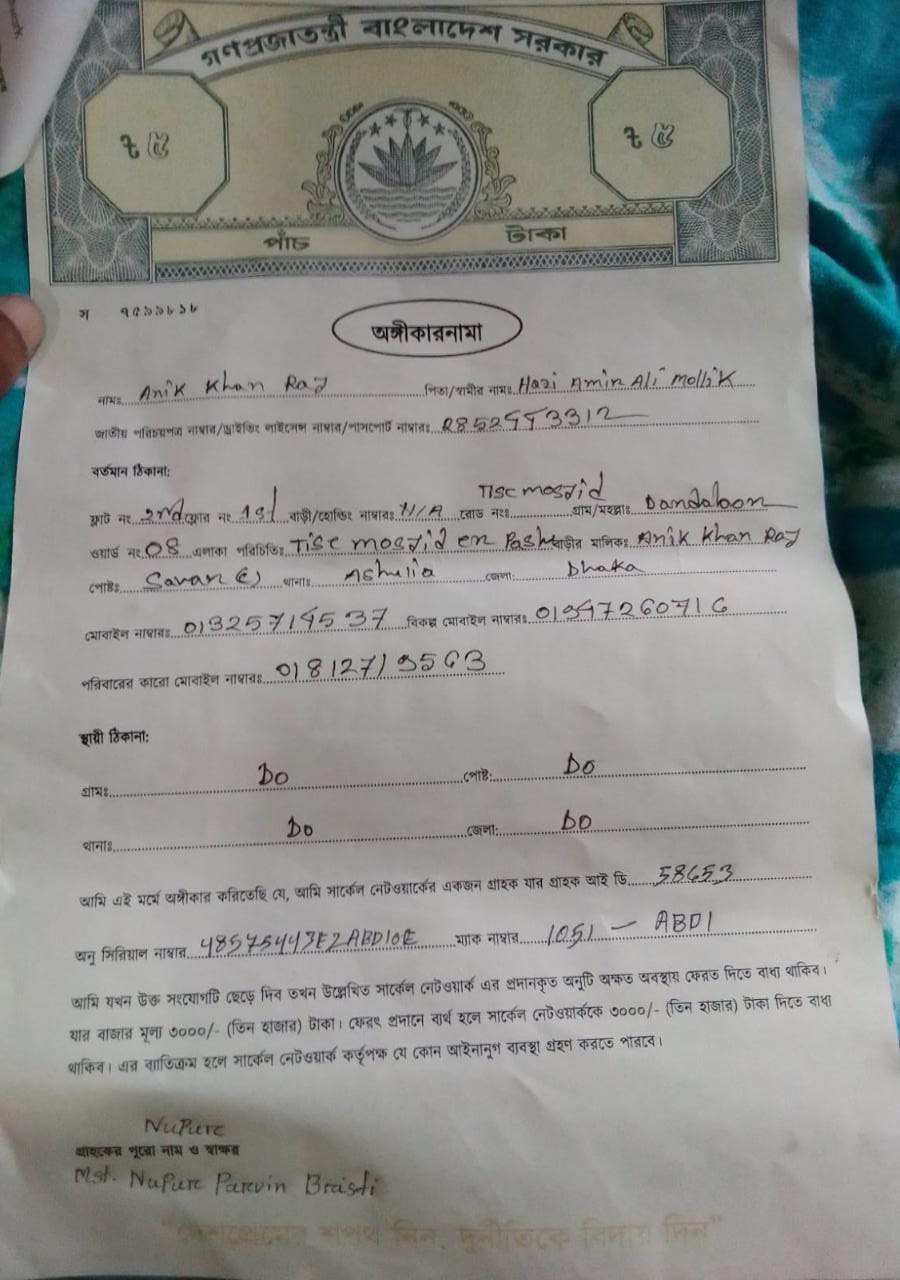 গণপ্রজাতন্ত্রী বাংলাদেশ সরকার
৳ ৫ ৳ ৫
পাঁচ টাকা
অঙ্গীকারনামা
নামঃ Anik Khan Raj পিতা/স্বামীর নামঃ Hazi Amin Ali Mollik
জাতীয় পরিচয়পত্র নাম্বার/ড্রাইভিং লাইসেন্স নাম্বার/পাসপোর্ট নাম্বারঃ
বর্তমান ঠিকানা:
ফ্লাট নং 2nd ফ্লোর নং 1st বাড়ী/হোল্ডিং নাম্বারঃ N/A রোড নংঃ Tisc mosjid গ্রাম/মহল্লাঃ Dandaloon
ওয়ার্ড নং 08 এলাকা পরিচিতিঃ Tisc mosjid er Pashe বাড়ীর মালিকঃ Anik Khan Raj
পোষ্টঃ Savar থানাঃ Ashulia জেলা: Dhaka
মোবাইল নাম্বারঃ বিকল্প মোবাইল নাম্বারঃ
পরিবারের কারো মোবাইল নাম্বারঃ
স্থায়ী ঠিকানা:
গ্রামঃ Do পোষ্ট: Do
থানাঃ Do জেলা: Do
আমি এই মর্মে অঙ্গীকার করিতেছি যে, আমি সার্কেল নেটওয়ার্কের একজন গ্রাহক যার গ্রাহক আই ডি 58653
অনু সিরিয়াল নাম্বার ম্যাক নাম্বার 1051 – ABD1
আমি যখন উক্ত সংযোগটি ছেড়ে দিব তখন উল্লেখিত সার্কেল নেটওয়ার্ক এর প্রদানকৃত অনুটি অক্ষত অবস্থায় ফেরত দিতে বাধ্য থাকিব।
যার বাজার মূল্য ৩০০০/- (তিন হাজার) টাকা। ফেরৎ প্রদানে ব্যর্থ হলে সার্কেল নেটওয়ার্ককে ৩০০০/- (তিন হাজার) টাকা দিতে বাধ্য
থাকিব। এর ব্যতিক্রম হলে সার্কেল নেটওয়ার্ক কর্তৃপক্ষ যে কোন আইনানুগ ব্যবস্থা গ্রহণ করতে পারবে।
Nupure
গ্রাহকের পুরো নাম ও স্বাক্ষর
Mst. Nupure Parvin Bristi
"দেশপ্রেমের শপথ নিন, দুর্নীতিকে বিদায় দিন"